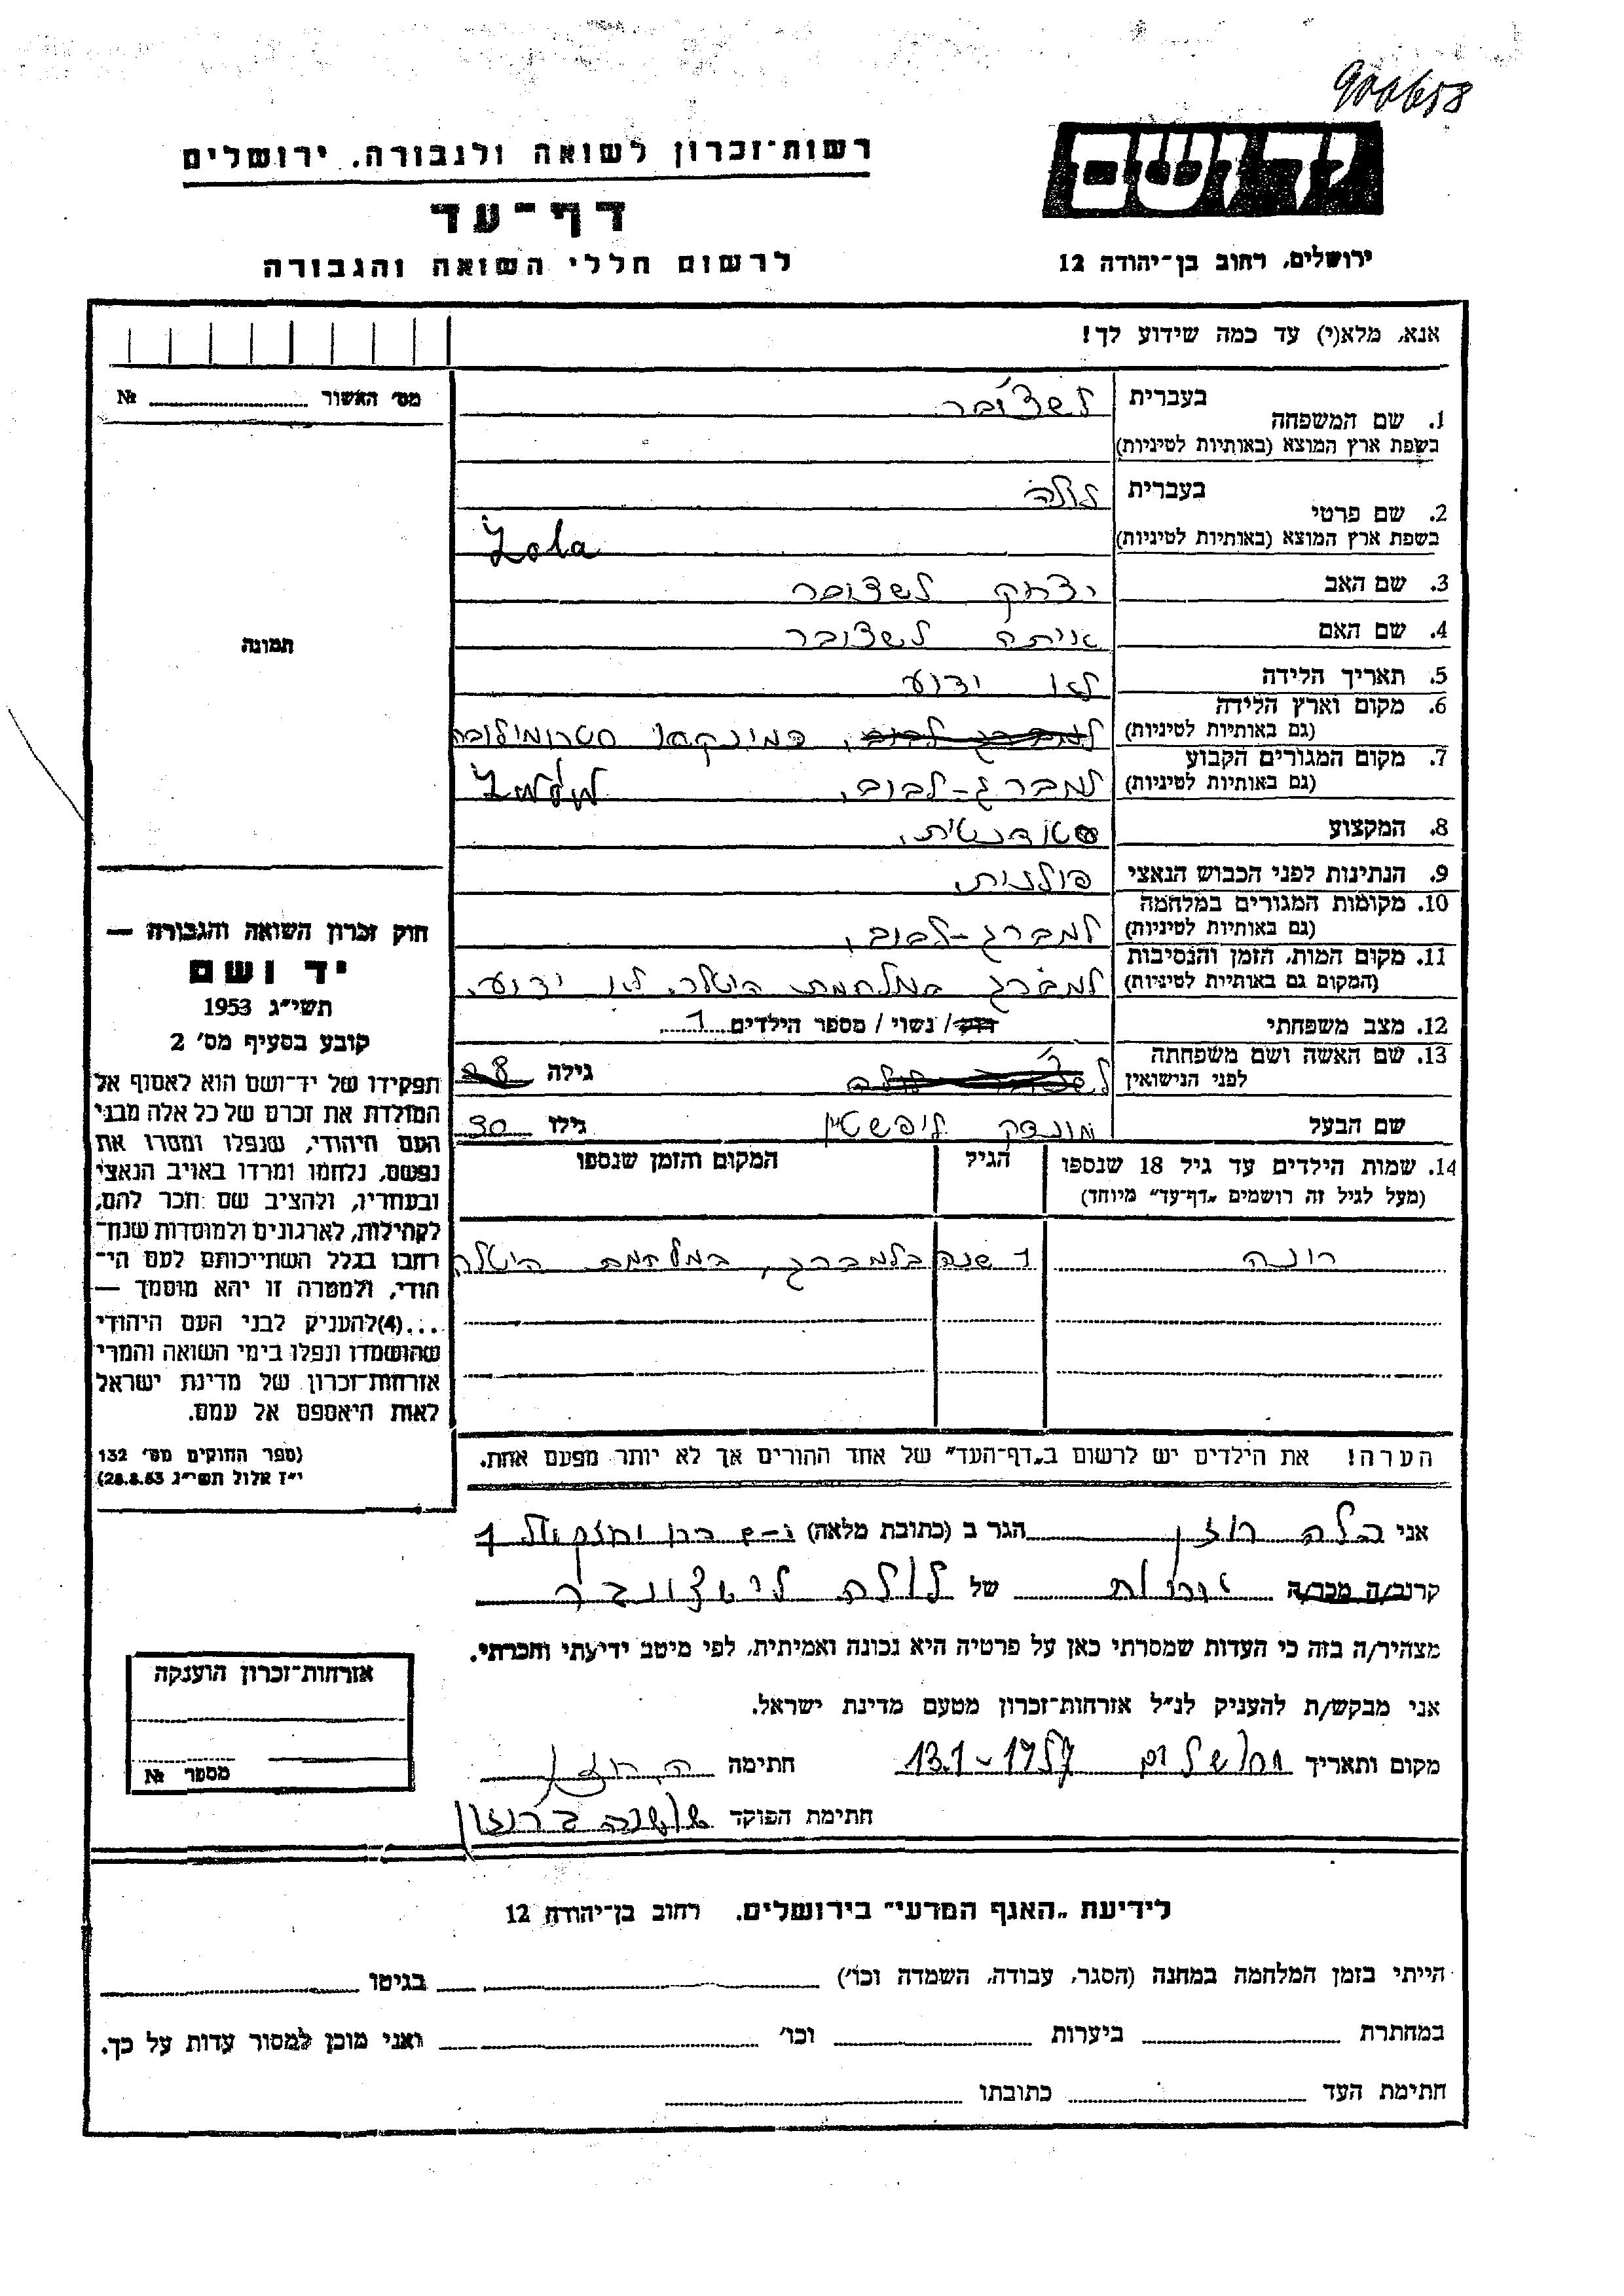 900658
יד ושם
ירושלים, רחוב בן-יהודה 12
רשות-זכרון לשואה ולגבורה, ירושלים
דף-עד
לרשום חללי השואה והגבורה
אנא, מלא(י) עד כמה שידוע לך!
מס' האשור № 
1. שם המשפחה
בעברית לשצ'ובר
בשפת ארץ המוצא (באותיות לטיניות)
2. שם פרטי
בעברית לולה
בשפת ארץ המוצא (באותיות לטיניות) Lola
3. שם האב יצחק לשצובר
4. שם האם איתה לשצובר
5. תאריך הלידה לא ידוע
6. מקום וארץ הלידה
(גם באותיות לטיניות) למברג לבוב, קמינקאו סטרומילובה
7. מקום המגורים הקבוע
(גם באותיות לטיניות) למברג-לבוב,
8. המקצוע סטודנטית.
9. הנתינות לפני הכבוש הנאצי פולנית.
10. מקומות המגורים במלחמה
(גם באותיות לטיניות) למברג-לבוב,
11. מקום המות, הזמן והנסיבות
(המקום גם באותיות לטיניות) למברג במלחמת היטלר. לא ידוע.
12. מצב משפחתי רווק / נשוי / מספר הילדים 1
13. שם האשה ושם משפחתה
לפני הנישואין לולה גילה 28
שם הבעל מונדק ליפשטיין גילו 30
14. שמות הילדים עד גיל 18 שנספו הגיל המקום והזמן שנספו
(מעל לגיל זה רושמים „דף-עד" מיוחד)
רונה 1 שנה בלמברג, במלחמת היטלר
הערה! את הילדים יש לרשום ב„דף-העד" של אחד ההורים אך לא יותר מפעם אחת.
תמונה
חוק זכרון השואה והגבורה —
יד ושם
תשי"ג 1953
קובע בסעיף מס' 2
תפקידו של יד-ושם הוא לאסוף אל
המולדת את זכרם של כל אלה מבני
העם היהודי, שנפלו ומסרו את
נפשם, נלחמו ומרדו באויב הנאצי
ובעוזריו, ולהציב שם וזכר להם,
לקהילות, לארגונים ולמוסדות שנח-
רבו בגלל השתייכותם לעם הי-
הודי, ולמטרה זו יהא מוסמך —
...(4) להעניק לבני העם היהודי
שהושמדו ונפלו בימי השואה והמרי
אזרחות-זכרון של מדינת ישראל
לאות היאספם אל עמם.
(ספר החוקים מס' 132
י"ז אלול תשי"ג 28.8.53)
אני הלה רוזן הגר ב (כתובת מלאה)
קרוב/ה מכר/ה אחות של לולה לשצובר
מצהיר/ה בזה כי העדות שמסרתי כאן על פרטיה היא נכונה ואמיתית, לפי מיטב ידיעתי והכרתי.
אני מבקש/ת להעניק לנ"ל אזרחות-זכרון מטעם מדינת ישראל.
מקום ותאריך ירושלים 13.1-1957 חתימה ה. רוזן
חתימת הפוקד
אזרחות-זכרון הוענקה
מספר №
לידיעת „האגף המדעי" בירושלים. רחוב בן-יהודה 12
הייתי בזמן המלחמה במחנה (הסגר, עבודה, השמדה וכו') בגיטו
במחתרת ביערות וכו' ואני מוכן למסור עדות על כך.
חתימת העד כתובתו